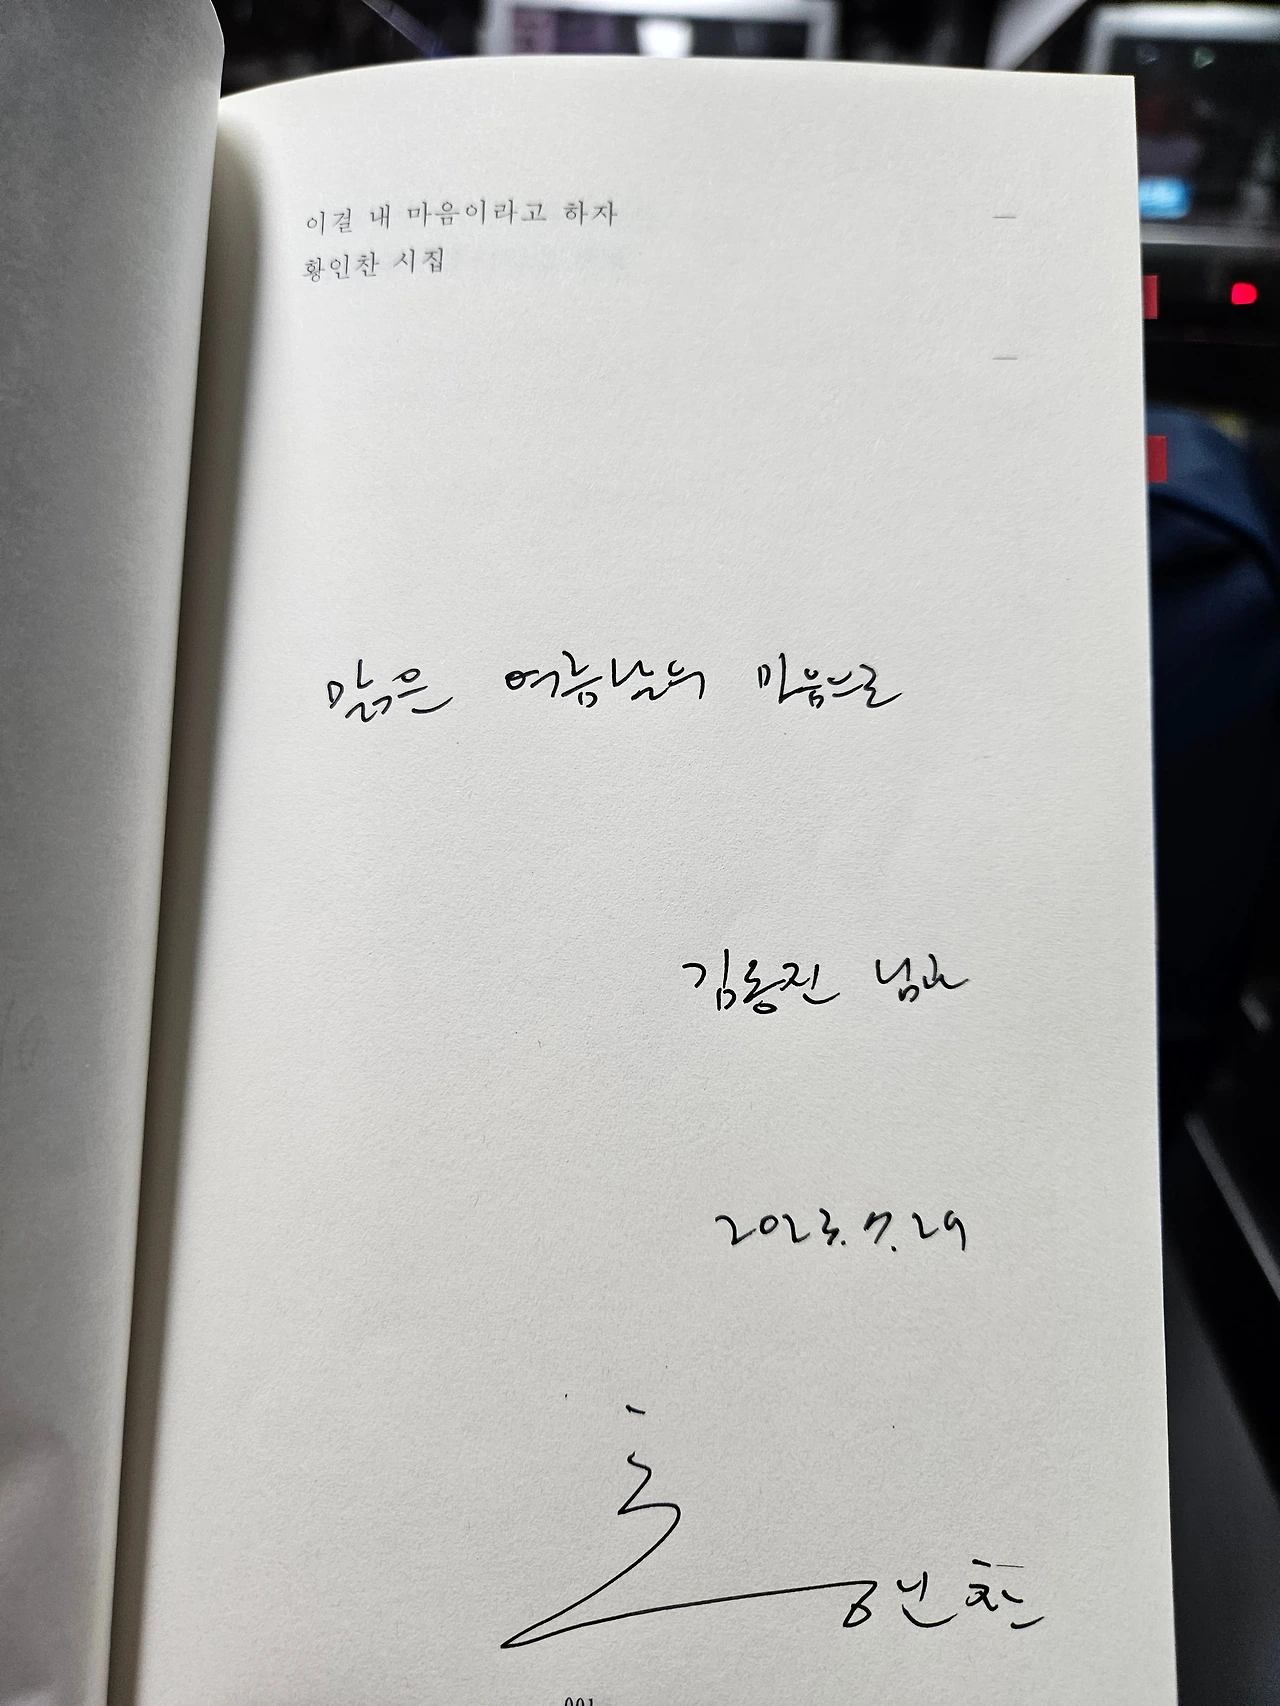 이걸 내 마음이라고 하자
황인찬 시집
맑은 여름날의 마음으로
김동진 님과
2023.7.29
황인찬
001